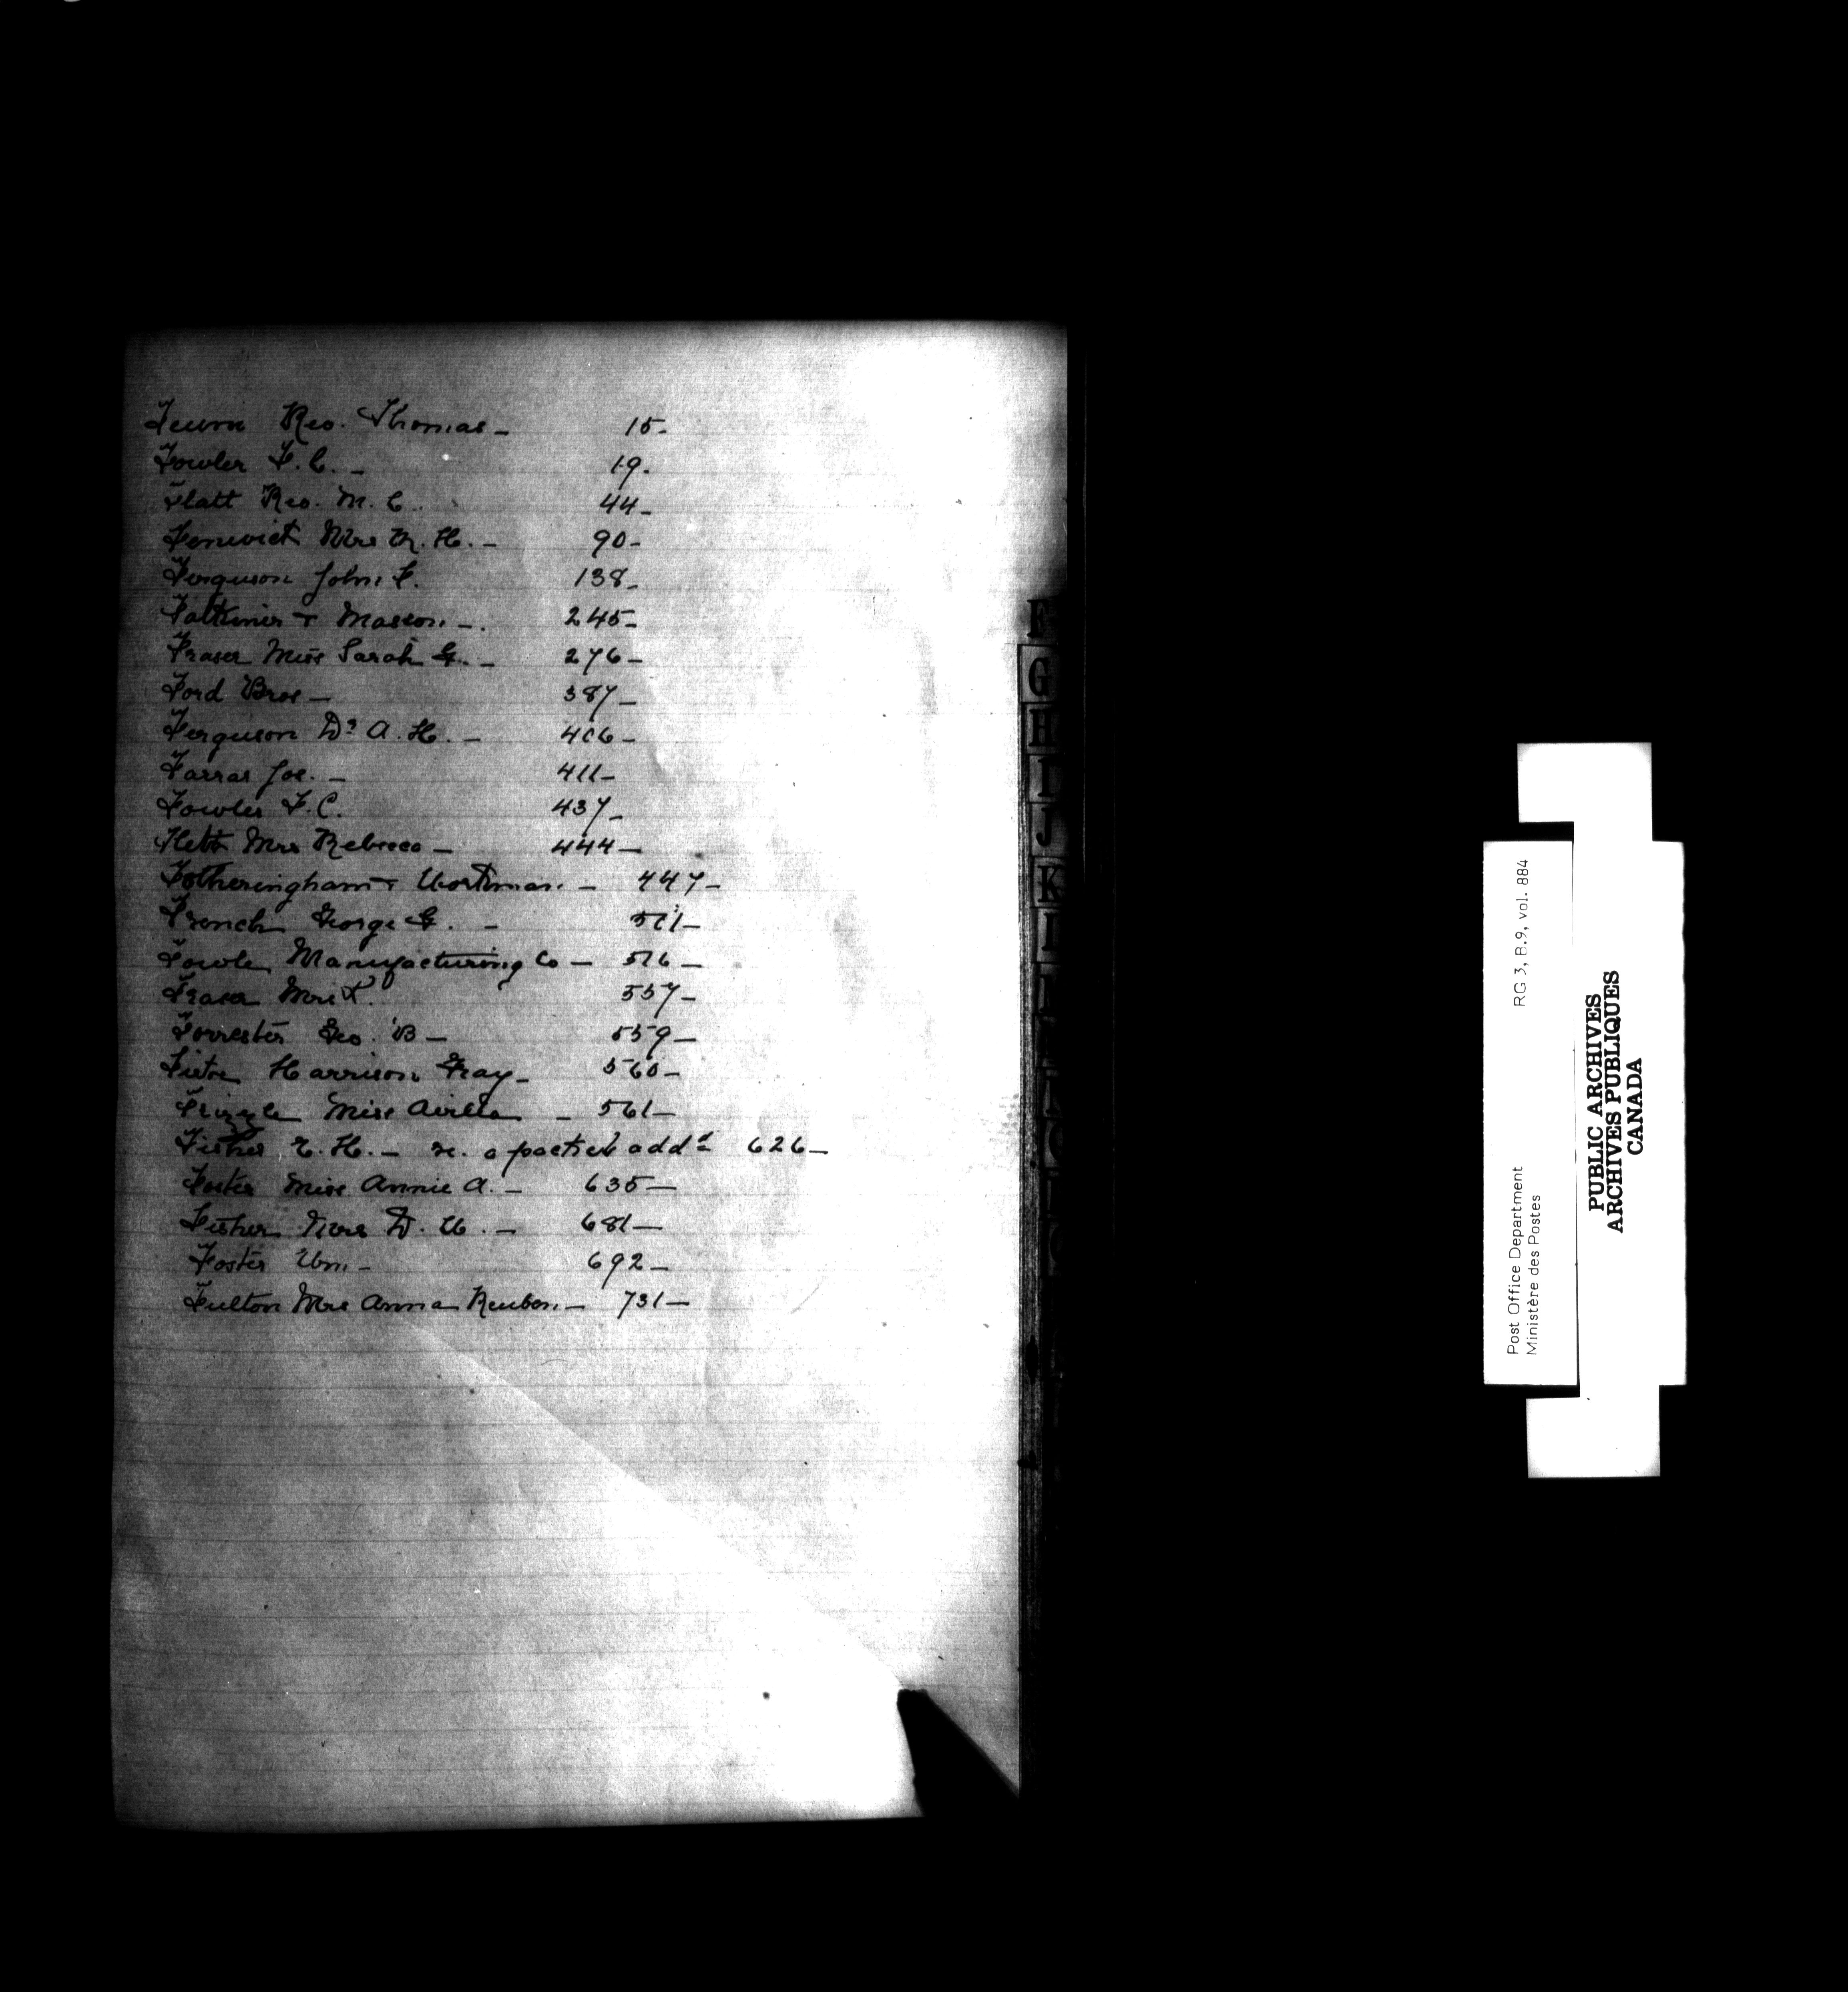 Rev. Thomas - 15-
Fowler F. C. - 19.
Flatt Rev. M. C. 44-
Fenwick Mrs H. - 90-
Ferguson John F. 138-
Falkiner + Masson - 245-
Fraser Miss Sarah G. - 276-
Ford Bros - 387-
Ferguson Dr A. H. - 406-
Farrar Joe. - 411-
Fowler F. C. 437-
Flett Mrs Rebecca - 444-
Fotheringham + Workman - 447-
French George G. - 501-
Fowler Manufacturing Co - 516-
Fraser Mrs 557-
Forrester Geo. B - 559-
Harrison Gray - 560-
Frizzle Miss - 561-
Fisher H. - a packet addd 626-
Foster Miss Annie A. - 635-
Fisher Mrs D. W. - 681-
Foster Wm. - 692-
Fulton Mrs Anna Reuben - 731-
G
H
I
J
K
Post Office Department
Ministère des Postes
RG 3, B.9, vol. 884
PUBLIC ARCHIVES
ARCHIVES PUBLIQUES
CANADA